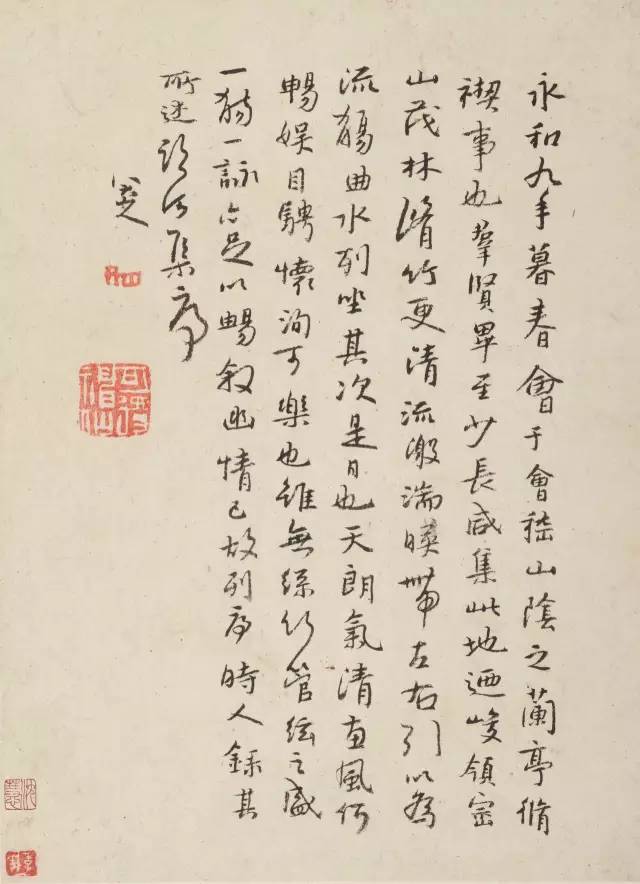 永和九年暮春會于會稽山陰之蘭亭脩
禊事也羣賢畢至少長咸集此地迺峻領崇
山茂林脩竹更清流激湍暎帶左右引以為
流觴曲水列坐其次是日也天朗氣清惠風和
暢娱目騁懷洵可樂也雖無絲竹管絃之盛
一觴一詠亦足以暢敘幽情已故列序時人錄其
所述臨河集序
八大山人
可得神仙